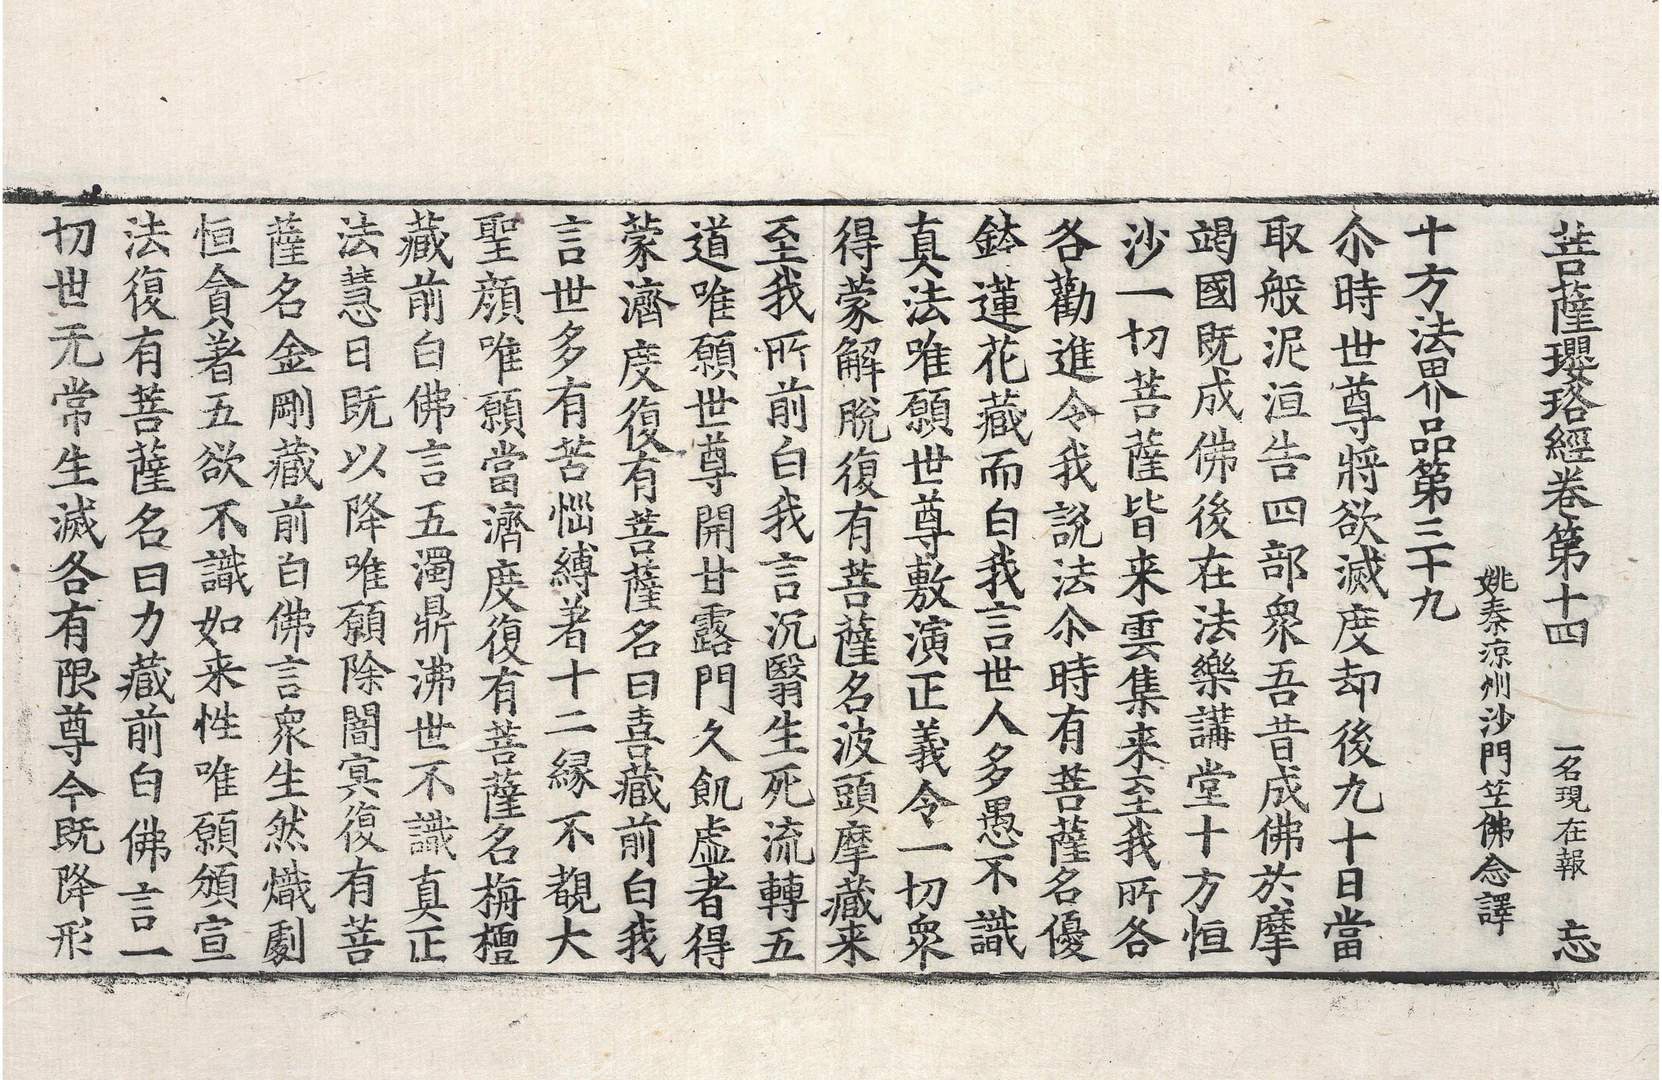 菩薩瓔珞經卷第十四 一名現在報 忘
姚秦涼州沙門竺佛念譯
十方法界品第三十九
尒時世尊將欲滅度却後九十日當
取般泥洹告四部衆吾昔成佛於摩
竭國既成佛後在法樂講堂十方恒
沙一切菩薩皆来雲集来至我所各
各勸進令我說法尒時有菩薩名優
鉢蓮花藏而白我言世人多愚不識
真法唯願世尊敷演正義令一切衆
得蒙解脫復有菩薩名波頭摩藏来
至我所前白我言沉翳生死流轉五
道唯願世尊開甘露門久飢虛者得
蒙濟度復有菩薩名曰喜藏前白我
言世多有苦惱縛著十二緣不覩大
聖顔唯願當濟度復有菩薩名栴檀
藏前白佛言五濁鼎沸世不識真正
法慧日既以降唯願除闇冥復有菩
薩名金剛藏前白佛言衆生然熾劇
恒貪著五欲不識如来性唯願頒宣
法復有菩薩名曰力藏前白佛言一
切世无常生滅各有限尊今既降形